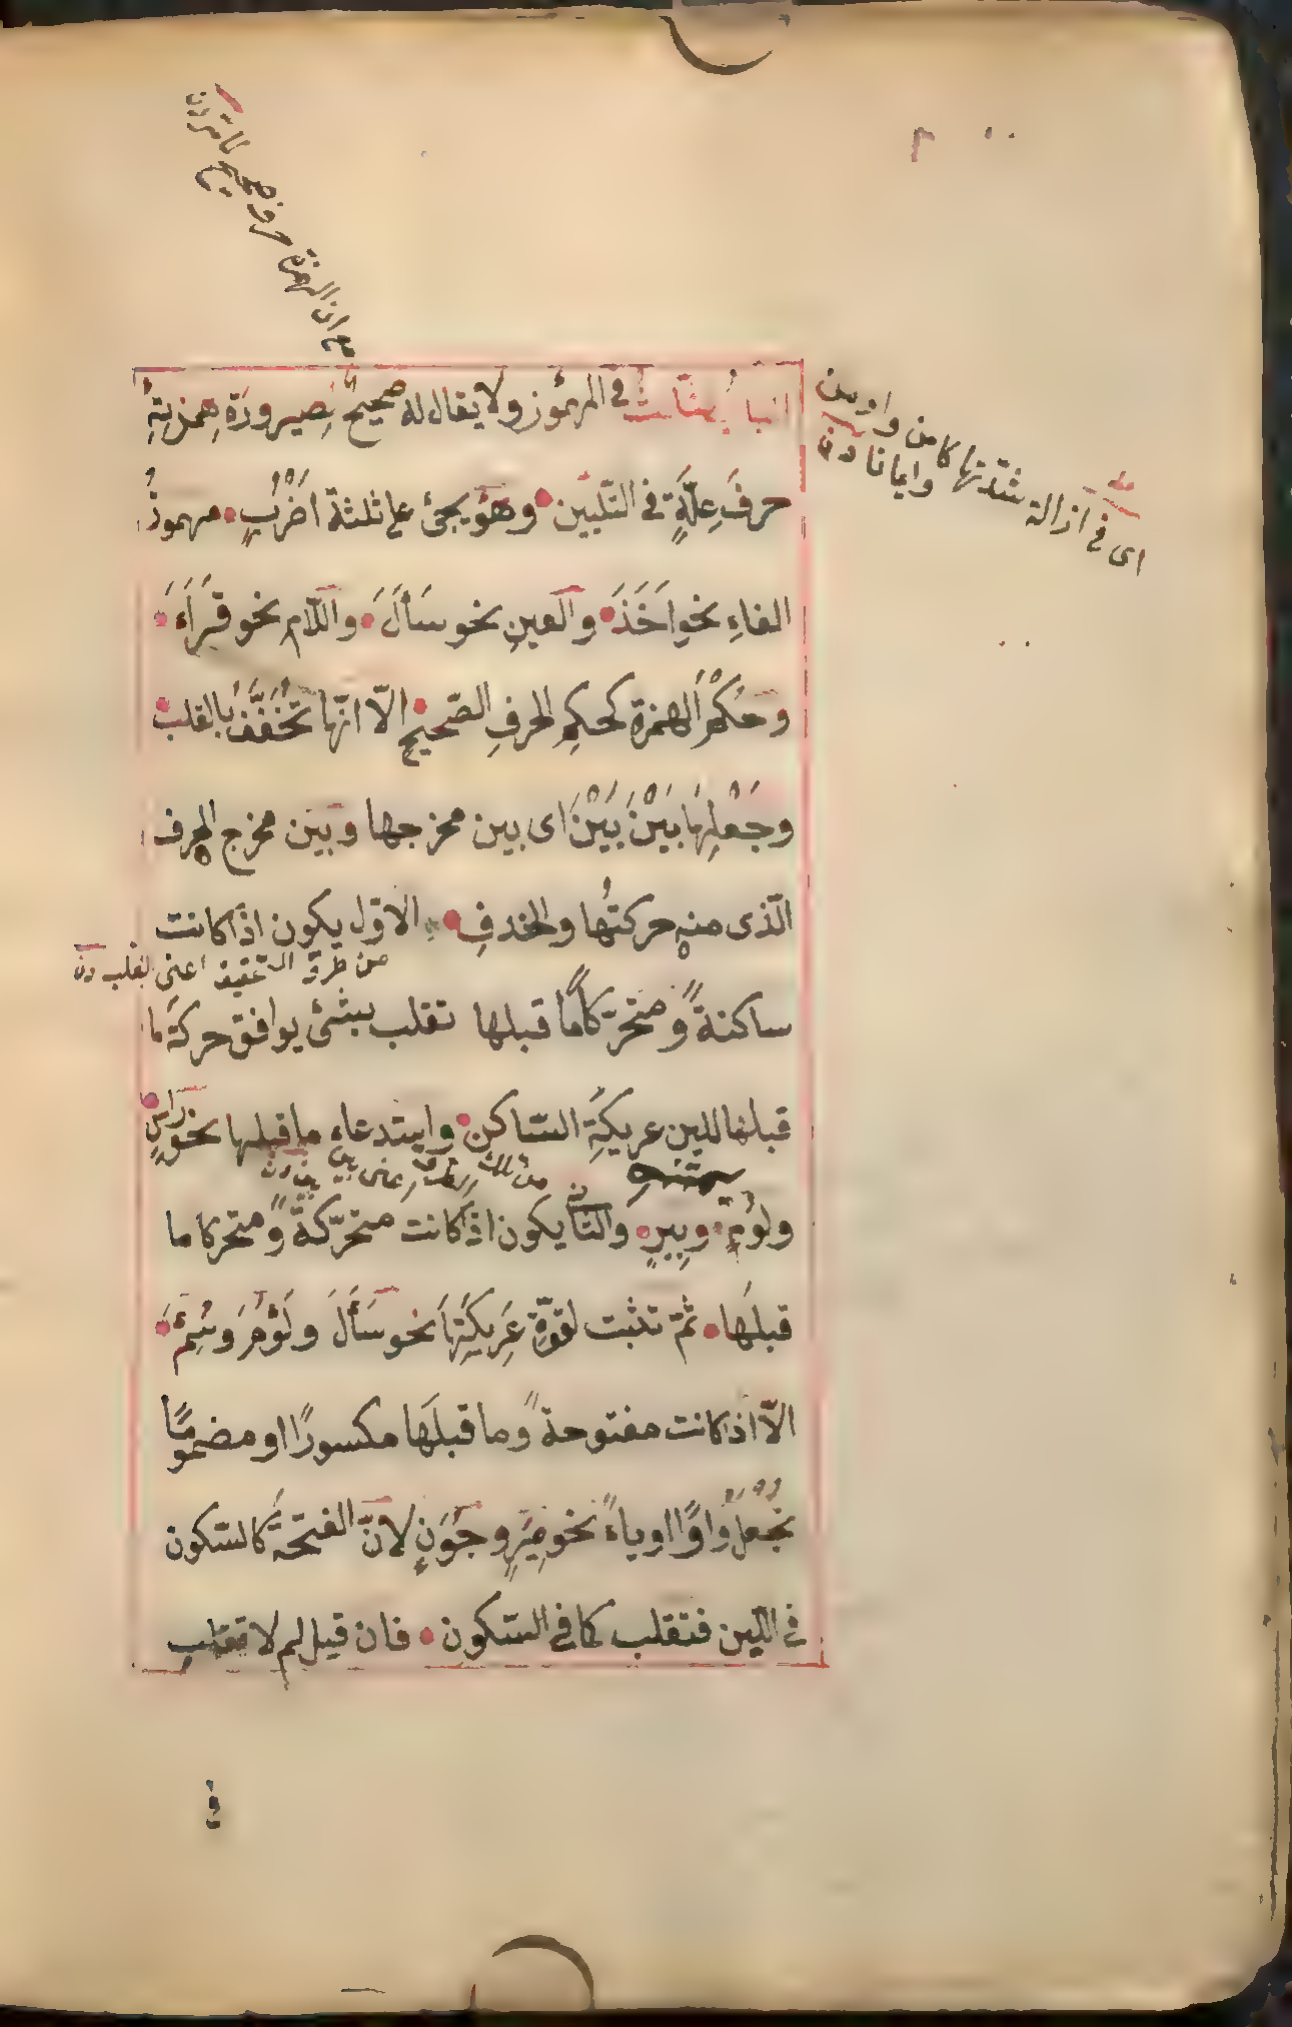 الباب الثالث في المهموز ولا يقال له صحيح لصيرورة همزته
حرفَ علّةٍ في التّليين وهو يجئ على ثلثة اضْرُبٍ مهموزُ
الفاءِ نحو اَخَذَ والعينِ نحو سَأَلَ واللّام نحو قَرَاَءَ
وحُكمُ الهمزة كحكمِ الحرفِ الصّحيحِ الّا انّها تُخَفَّفُ بالقلب
وجَعْلِهَا بَيْنَ بَيْنَ اى بين مخرجها وبين مخرج الحرف
الّذى منه حركتُها والحذفِ الاوّل يكون اذا كانت
من طرق التخفيف اعنى القلب
ساكنةً ومتحرّكًا ما قبلها تقلب بشئ يوافق حركةَ ما
قبلها للين عريكةِ السّاكن واستدعاءِ ما قبلها نحو راسٍ
من تلك الطرق اعنى بين بين
ولؤمٍ وبيرٍ والثّانى يكون اذا كانت متحرّكةً ومتحركا ما
قبلَها ثمّ تثبت لقوّةِ عَرِيكَتِهَا نحو سَأَلَ ولَؤُمَ وسَئِمَ
الّا اذا كانت مفتوحةً وما قبلَها مكسورًا او مضمومًا
تُجْعَلُ واوًا او ياءً نحو مِيَرٍ وجُوَنٍ لانّ الفتحةَ كالسّكون
في اللّين فتقلب كما في السّكون فان قيل لم لا تقلب
اى في ازالة شدّتها كا من واو من